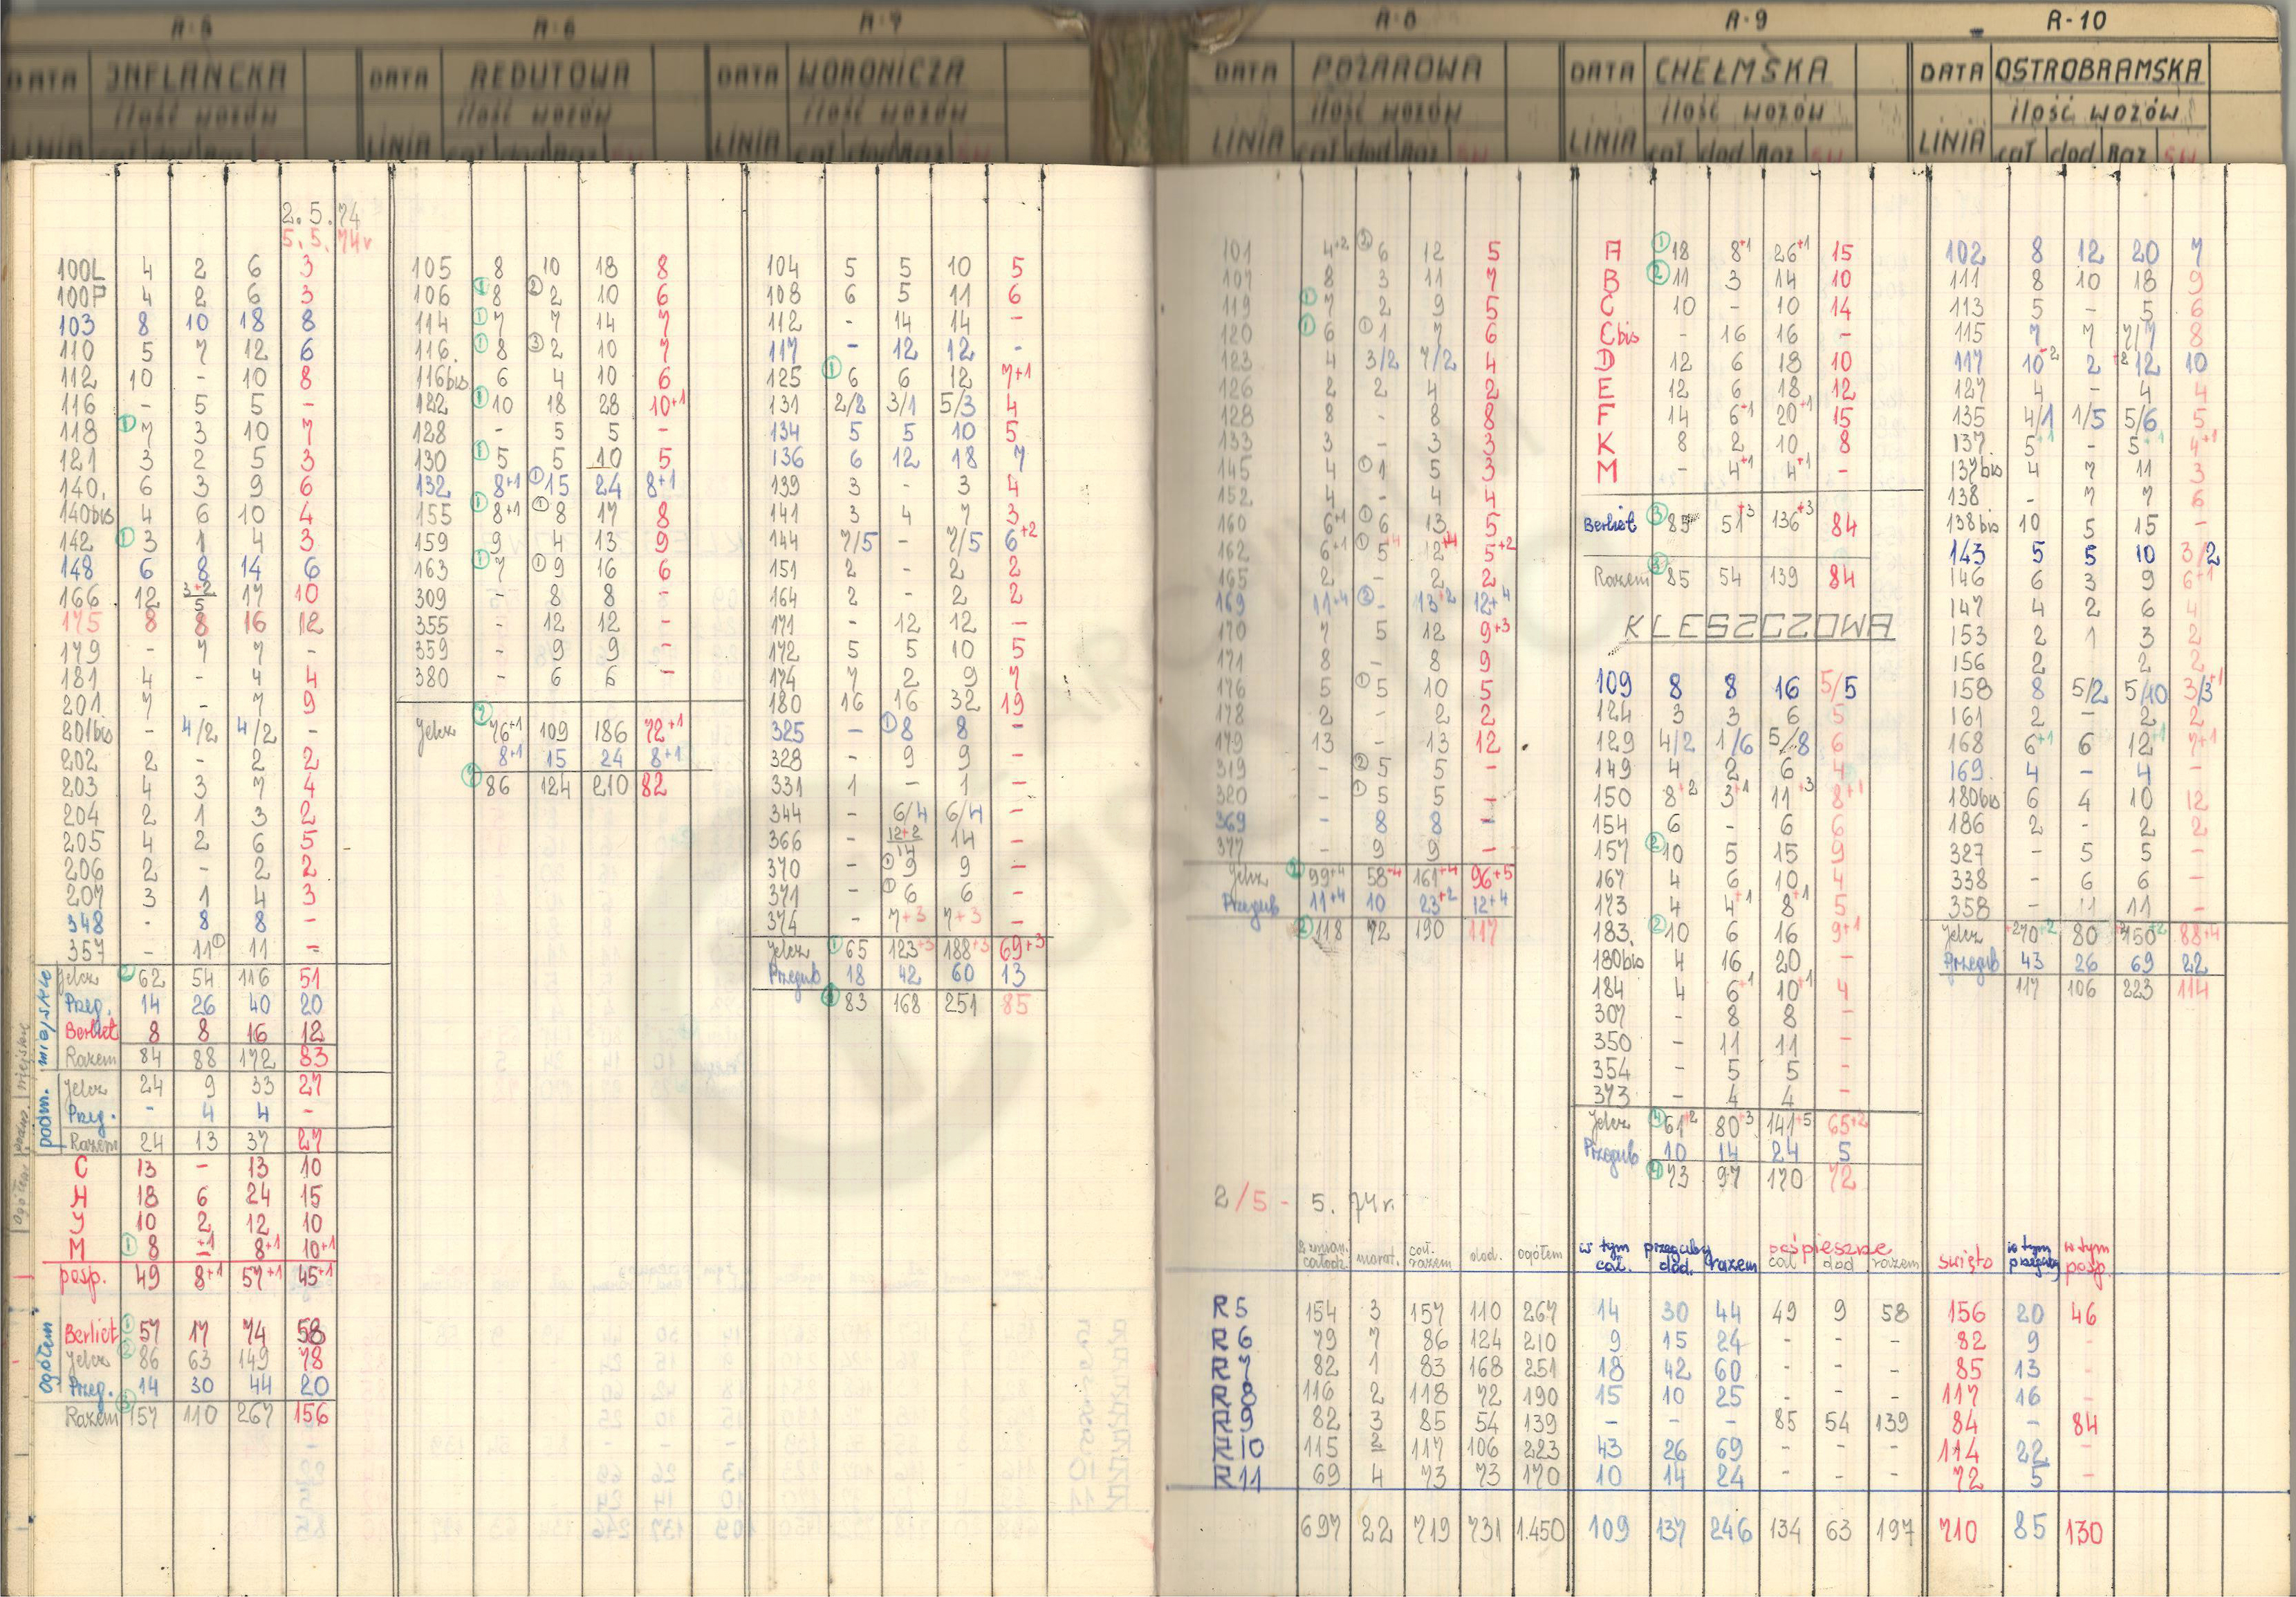 R-5 R-6 R-7 R-8 R-9 R-10
DATA INFLANCKA DATA REDUTOWA DATA WORONICZA DATA POŻAROWA DATA CHEŁMSKA DATA OSTROBRAMSKA
ilość wozów ilość wozów ilość wozów ilość wozów ilość wozów ilość wozów
LINIA cał dod Raz LINIA cał dod Raz LINIA cał dod Raz LINIA cał dod Raz św LINIA cał dod Raz św LINIA cał dod Raz św
2.5.74
5.5.74r
100L 4 2 6 3
100P 4 2 6 3
103 8 10 18 8
110 5 7 12 6
112 10 - 10 8
116 - 5 5 -
118 ① 7 3 10 7
121 3 2 5 3
140. 6 3 9 6
140bis 4 6 10 4
142 ① 3 1 4 3
148 6 8 14 6
166 12 3+2/5 17 10
175 8 8 16 12
179 - 7 7 -
181 4 - 4 4
201 7 - 7 9
201bis - 4/2 4/2 -
202 2 - 2 2
203 4 3 7 4
204 2 1 3 2
205 4 2 6 5
206 2 - 2 2
207 3 1 4 3
348 - 8 8 -
357 - 11① 11 =
miejskie
Jelcz ② 62 54 116 51
Przeg. 14 26 40 20
Berliet 8 8 16 12
Razem 84 88 172 83
podm.
Jelcz 24 9 33 27
Przeg. - 4 4 -
Razem 24 13 37 27
C 13 - 13 10
H 18 6 24 15
J 10 2 12 10
M ① 8 +1 8+1 10+1
posp. 49 8+1 57+1 45+1
ogółem
Berliet ① 57 17 74 58
Jelcz ② 86 63 149 78
Przeg. 14 30 44 20
Razem ③ 157 110 267 156
105 8 10 18 8
106 ① 8 ② 2 10 6
114 ① 7 7 14 7
116. ① 8 ③ 2 10 7
116bis 6 4 10 6
122 ① 10 18 28 10+1
128 - 5 5 -
130 ① 5 5 10 5
132 8+1 ① 15 24 8+1
155 ① 8+1 ① 8 17 8
159 9 4 13 9
163 ① 7 ① 9 16 6
309 - 8 8 -
355 - 12 12 -
359 - 9 9 -
380 - 6 6 -
Jelcz ⑦ 76+1 109 186 72+1
8+1 15 24 8+1
⑦ 86 124 210 82
104 5 5 10 5
108 6 5 11 6
112 - 14 14 -
117 - 12 12 -
125 ① 6 6 12 7+1
131 2/2 3/1 5/3 4
134 5 5 10 5
136 6 12 18 7
139 3 - 3 4
141 3 4 7 3
144 7/5 - 7/5 6+2
151 2 - 2 2
164 2 - 2 2
171 - 12 12 -
172 5 5 10 5
174 7 2 9 7
180 16 16 32 19
325 - ① 8 8 -
328 - 9 9 -
331 1 - 1 -
344 - 6/4 6/4 -
366 - 12+2/14 14 -
370 - ① 9 9 -
371 - ① 6 6 -
374 - 7+3 7+3 -
Jelcz ① 65 123+3 188+3 69+3
Przegub 18 42 60 13
① 83 168 251 85
101 4+2 ② 6 12 5
107 8 3 11 7
119 ① 7 2 9 5
120 ① 6 ① 1 7 6
123 4 3/2 7/2 4
126 2 2 4 2
128 8 - 8 8
133 3 - 3 3
145 4 ① 1 5 3
152 4 - 4 4
160 6+1 ① 6 13 5
162 6+1 ① 5+4 12+4 5+2
165 2 - 2 2
169 11+4 ② - 13+2 12+4
170 7 5 12 9+3
171 8 - 8 9
176 5 ① 5 10 5
178 2 - 2 2
179 13 - 13 12
319 - ② 5 5 -
320 - ① 5 5 -
369 - 8 8 -
377 - 9 9 -
Jelcz ② 99+4 58+4 161+4 96+5
Przegub 11+4 10 23+2 12+4
② 118 72 190 117
A ① 18 8+1 26+1 15
B ② 11 3 14 10
C 10 - 10 14
Cbis - 16 16 -
D 12 6 18 10
E 12 6 18 12
F 14 6+1 20+1 15
K 8 2 10 8
M - 4+1 4+1 -
Berliet ③ 85 51+3 136+3 84
Razem ③ 85 54 139 84
KLESZCZOWA
109 8 8 16 5/5
124 3 3 6 5
129 4/2 1/6 5/8 6
149 4 2 6 4
150 8+2 3+1 11+3 8+1
154 6 - 6 6
157 ② 10 5 15 9
167 4 6 10 4
173 4 4+1 8+1 5
183. ② 10 6 16 9+1
180bis 4 16 20 -
184 4 6+1 10+1 4
307 - 8 8 -
350 - 11 11 -
354 - 5 5 -
373 - 4 4 -
Jelcz ④ 61+2 80+3 141+5 65+2
Przegub 10 14 24 5
④ 73 97 170 72
102 8 12 20 7
111 8 10 18 9
113 5 - 5 6
115 7 7 7/7 8
117 10-2 2 +2 12 10
127 4 - 4 4
135 4/1 1/5 5/6 5
137. 5+1 - 5+1 4+1
137bis 4 7 11 3
138 - 7 7 6
138bis 10 5 15 -
143 5 5 10 3/2
146 6 3 9 6+1
147 4 2 6 4
153 2 1 3 2
156 2 2 2
158 8 5/2 5/10 3/3+1
161 2 - 2 2
168 6+1 6 12+1 7+1
169. 4 - 4 -
180bis 6 4 10 12
186 2 - 2 2
327 - 5 5 -
338 - 6 6 -
358 - 11 11 -
Jelcz 70+2 80 150+2 88+4
Przegub 43 26 69 22
117 106 223 114
2/5 - 5. 74r.
całodz. marat. cał. razem dod. ogółem w tym cał. przeguby dod. razem pośpieszne cał dod razem święto w tym przeguby w tym posp.
R5 154 3 157 110 267 14 30 44 49 9 58 156 20 46
R6 79 7 86 124 210 9 15 24 - - - 82 9 -
R7 82 1 83 168 251 18 42 60 - - - 85 13 -
R8 116 2 118 72 190 15 10 25 - - - 117 16 -
R9 82 3 85 54 139 - - - 85 54 139 84 - 84
R10 115 2 117 106 223 43 26 69 - - - 114 22 -
R11 69 4 73 73 170 10 14 24 - - - 72 5 -
697 22 719 731 1.450 109 137 246 134 63 197 710 85 130